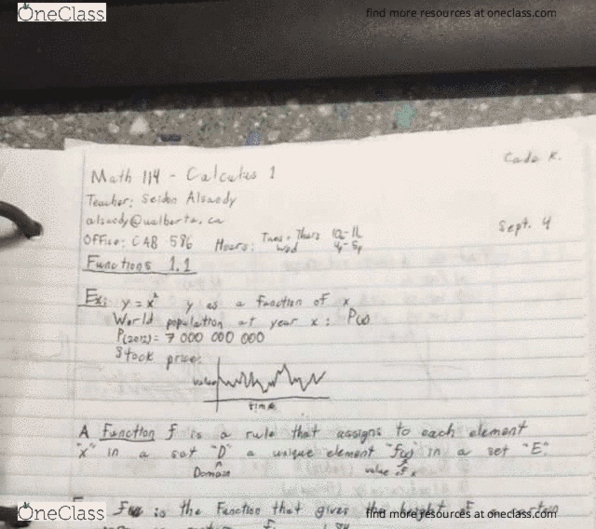 OneClass
find more resources at oneclass.com
Cade K.
Math 114 - Calculus 1
Teacher: Alsaedy
alsaedy@ualberta.ca
Sept. 4
Office: CAB 586 Hours: Tues + Thurs
Wed 4-5p
Functions 1.1
Ex: y = x² y as a function of x
World population at year x: P(x)
P(2012) = 7 000 000 000
Stock price:
value
time
A Function f is a rule that assigns to each element
"x" in a set "D" a unique element "f(x)" in a set "E".
Domain value of x
is the Function that gives the height of certain
OneClass
find more resources at oneclass.com